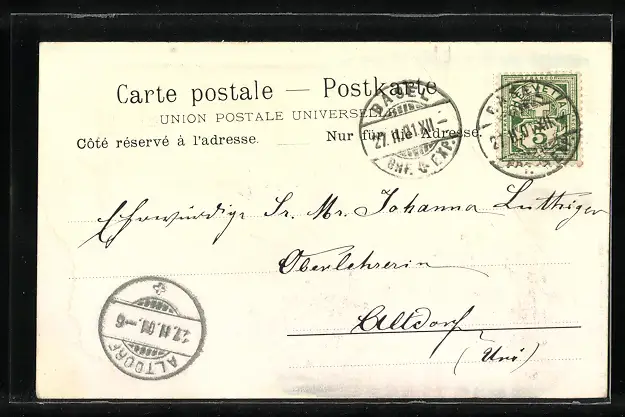 Carte postale — Postkarte
UNION POSTALE UNIVERSELLE
Côté réservé à l'adresse.
Nur für die Adresse.
BASEL
27.II.01.XII-
BRF. & EXP.
HELVETIA
5
Ehrwürdige Sr. Mr. Johanna Lüthiger
Oberlehrerin
Altdorf
(Uri)
27.II.01.-6
ALTDORF